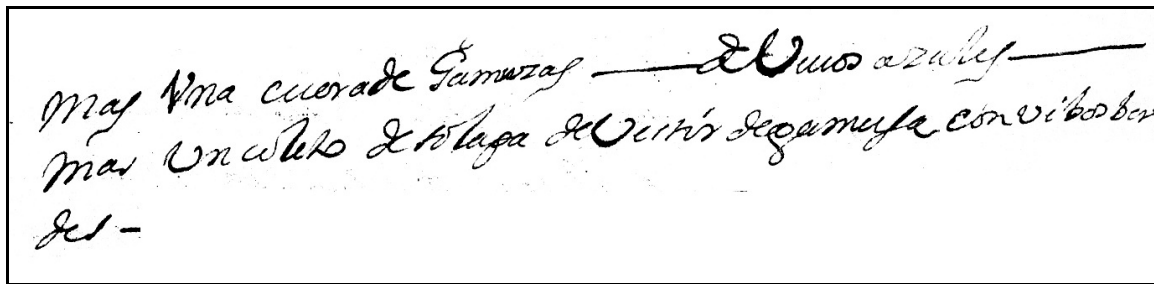 mas Vna cuera de Gamuzas — de Viuos azules —
mas Vn coleto de solapa de Vestir de gamusa con vibos ber
des —